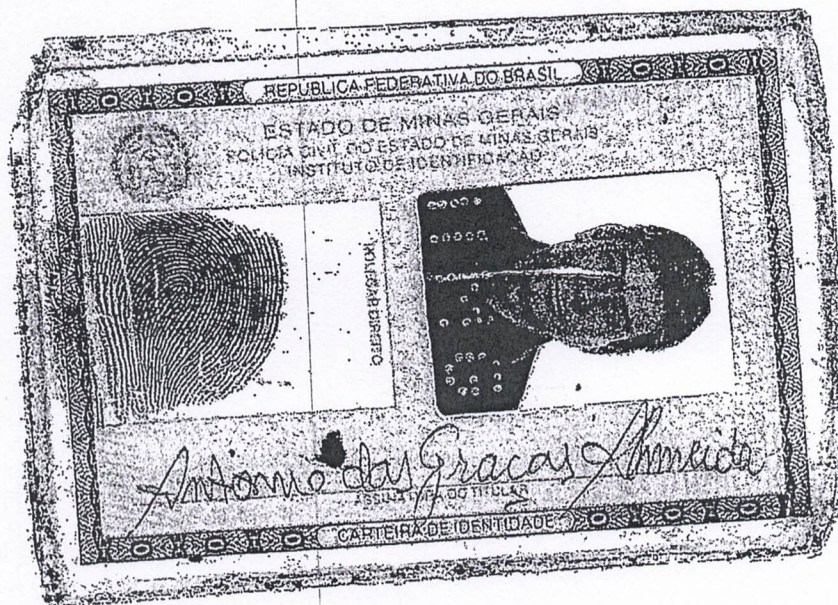 REPÚBLICA FEDERATIVA DO BRASIL
ESTADO DE MINAS GERAIS
POLÍCIA CIVIL DO ESTADO DE MINAS GERAIS
INSTITUTO DE IDENTIFICAÇÃO
POLEGAR DIREITO
Antonio das Graças Almeida
ASSINATURA DO TITULAR
CARTEIRA DE IDENTIDADE